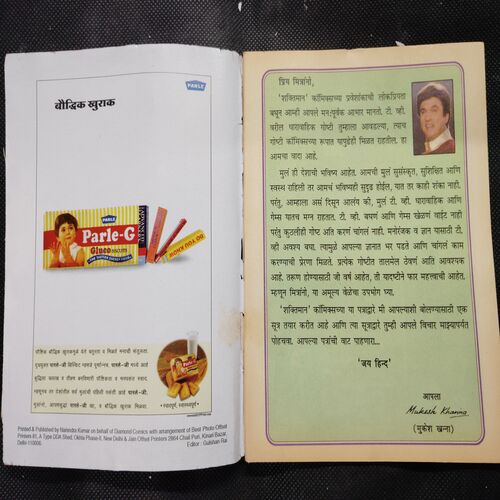 PARLE
बौद्धिक खुराक
PARLE
Parle-G
Gluco BISCUITS
DO YOU KNOW
Printed & Published by Narendra Kumar on behalf of Diamond Comics with arrangement of Best Photo Offset
Printers 81, A Type DDA Shed, Okhla Phase-II, New Delhi & Jain Offset Printers 2864 Chail Puri, Kinari Bazar,
Delhi-110006.
Editor : Gulshan Rai
प्रिय मित्रांनो,
'शक्तिमान' कॉमिक्सच्या प्रवेशांकाची लोकप्रियता
बघून आम्ही आपले मनःपूर्वक आभार मानतो. टी. व्ही.
वरील धारावाहिक गोष्टी तुम्हाला आवडल्या, त्याच
गोष्टी कॉमिक्सच्या रूपात यापुढेही मिळत राहतील. हा
आमचा वादा आहे.
मुलं ही देशाची भविष्य आहेत. आमची मुलं सुसंस्कृत, सुशिक्षित आणि
स्वस्थ राहिली तर आमचं भविष्यही सुदृढ होईल, यात तर काही शंका नाही.
परंतु, आम्हाला असं दिसून आलंय की, मुलं टी. व्ही. धारावाहिक आणि
गेम्स यातच मग्न राहतात. टी. व्ही. बघणं आणि गेम्स खेळणं वाईट नाही
परंतु कुठलीही गोष्ट अति करणं चांगलं नाही. मनोरंजक व ज्ञान यासाठी टी.
व्ही अवश्य बघा. त्यामुळं आपल्या ज्ञानात भर पडते आणि चांगलं काम
करण्याची प्रेरणा मिळते. प्रत्येक गोष्टीत तालमेल ठेवणं आति आवश्यक
आहे, तरूण होण्यासाठी जी वर्ष आहेत, ती यादृष्टीने फार महत्वाची आहेत.
म्हणून मित्रांनो, या अमूल्य वेळेचा उपभोग घ्या.
'शक्तिमान' कॉमिक्सच्या या पत्राद्वारे मी आपल्याशी बोलण्यासाठी एक
सूत्र तयार करीत आहे आणि त्या सूत्राद्वारे तुम्ही आपले विचार माझ्यापर्यंत
पोहचवा. आपल्या पत्रांची वाट पाहणारा...
'जय हिन्द'
आपला
Mukesh Khanna
(मुकेश खन्ना)